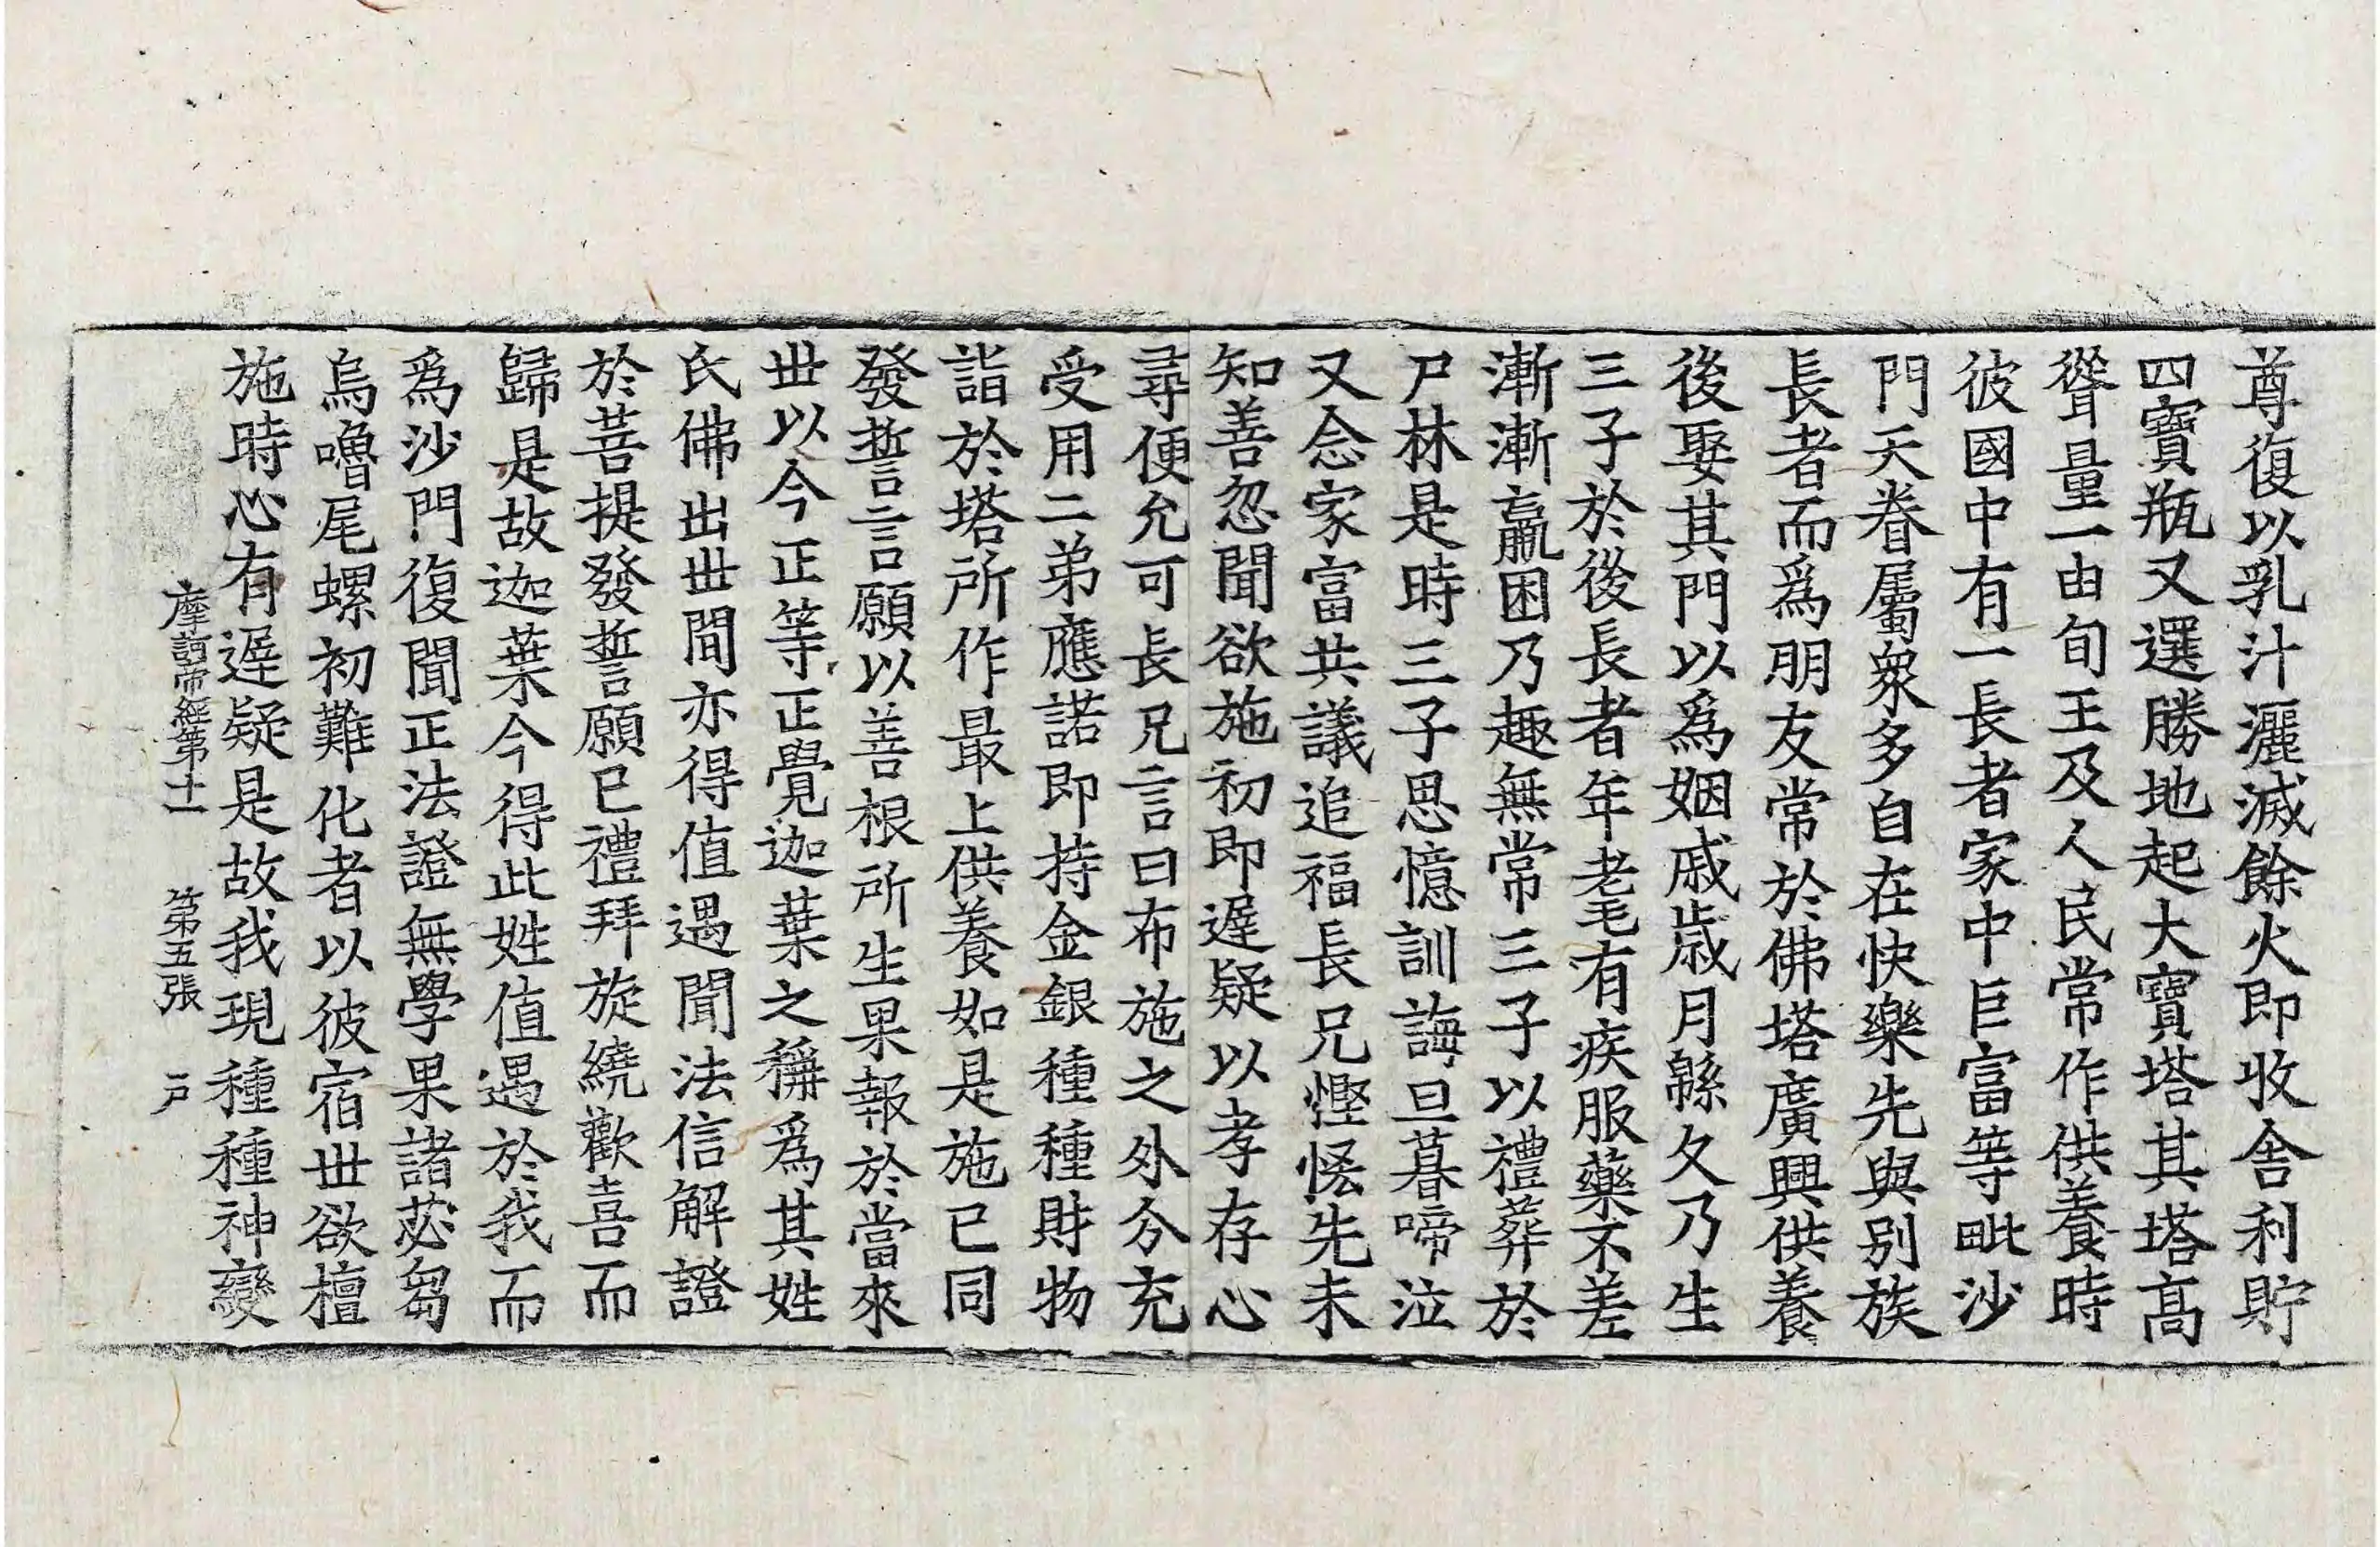 尊復以乳汁灑滅餘火即收舍利貯
四寶瓶又選勝地起大寶塔其塔高
聳量一由旬王及人民常作供養時
彼國中有一長者家中巨富等毗沙
門天眷屬衆多自在快樂先與別族
長者而爲朋友常於佛塔廣興供養
後娶其門以爲姻戚歲月緜久乃生
三子於後長者年耄有疾服藥不差
漸漸羸困乃趣無常三子以禮葬於
尸林是時三子思憶訓誨旦暮啼泣
又念家富共議追福長兄慳恡先未
知善忽聞欲施初即遲疑以孝存心
尋便允可長兄言曰布施之外分充
受用二弟應諾即持金銀種種財物
詣於塔所作最上供養如是施已同
發誓言願以善根所生果報於當來
世以今正等正覺迦葉之稱爲其姓
氏佛出世間亦得值遇聞法信解證
於菩提發誓願已禮拜旋繞歡喜而
歸是故迦葉今得此姓值遇於我而
爲沙門復聞正法證無學果諸苾芻
烏嚕尾螺初難化者以彼宿世欲檀
施時心有遲疑是故我現種種神變
摩訶帝經第十一 第五張 戸